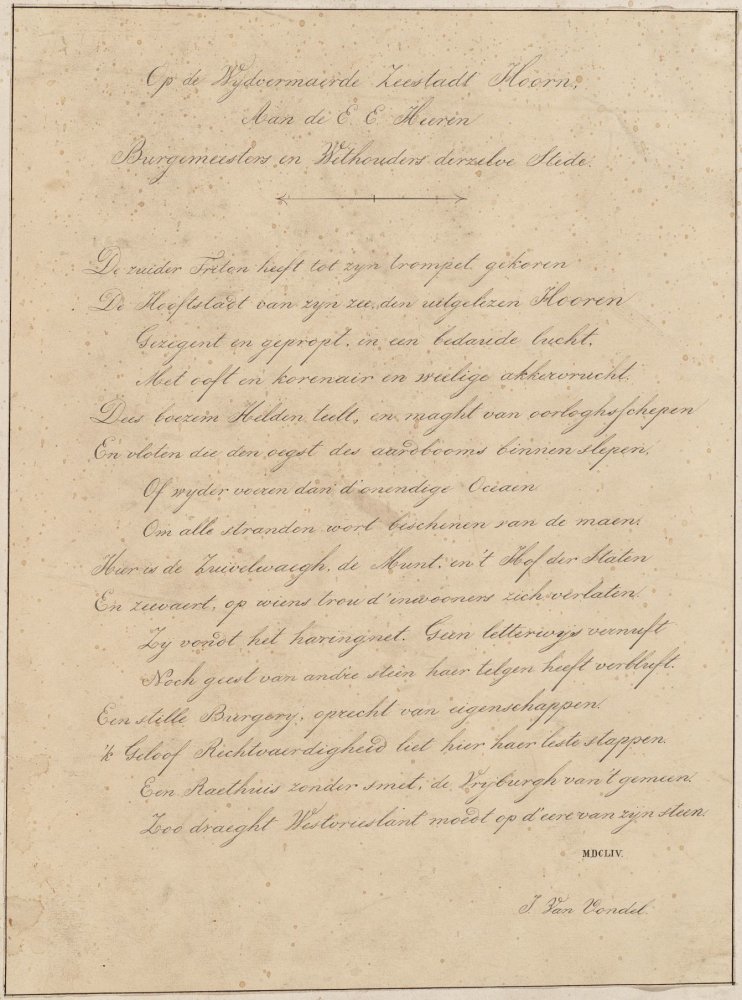 Op de Wijdvermaerde Zeestadt Hoorn,
Aan de E. E. Heeren
Burgemeesters en Wethouders derzelve Stede.
De zuider Triton heeft tot zyn trompet gekoren
De Hooftstadt van zyn zee, den uitgelezen Hooren
Gezegent en gepropt, in een bedaude lucht,
Met ooft en korenair en weilige akkervrucht.
Dees boezem Helden teelt, en maght van oorloghsschepen
En vloten die den oegst des aardbooms binnen slepen,
Of wyder voeren dan d'onendige Oceaen
Om alle stranden wort beschenen van de maen.
Hier is de Zuivelwaegh, de Munt, en 't Hof der Staten
En zeevaert, op wiens trou d'inwooners zich verlaten.
Zy vondt het haringnet. Geen letterwijs vernuft
Noch geest van andre steên haer telgen heeft verbluft.
Een stille Burgery, oprecht van eigenschappen.
'k Geloof Rechtvaerdigheid liet hier haer leste stappen.
Een Raethuis zonder smet, de Vryburgh van 't gemeen.
Zoo draeght Westvrieslant moedt op d'eere van zijn steen.
MDCLIV.
J. Van Vondel.